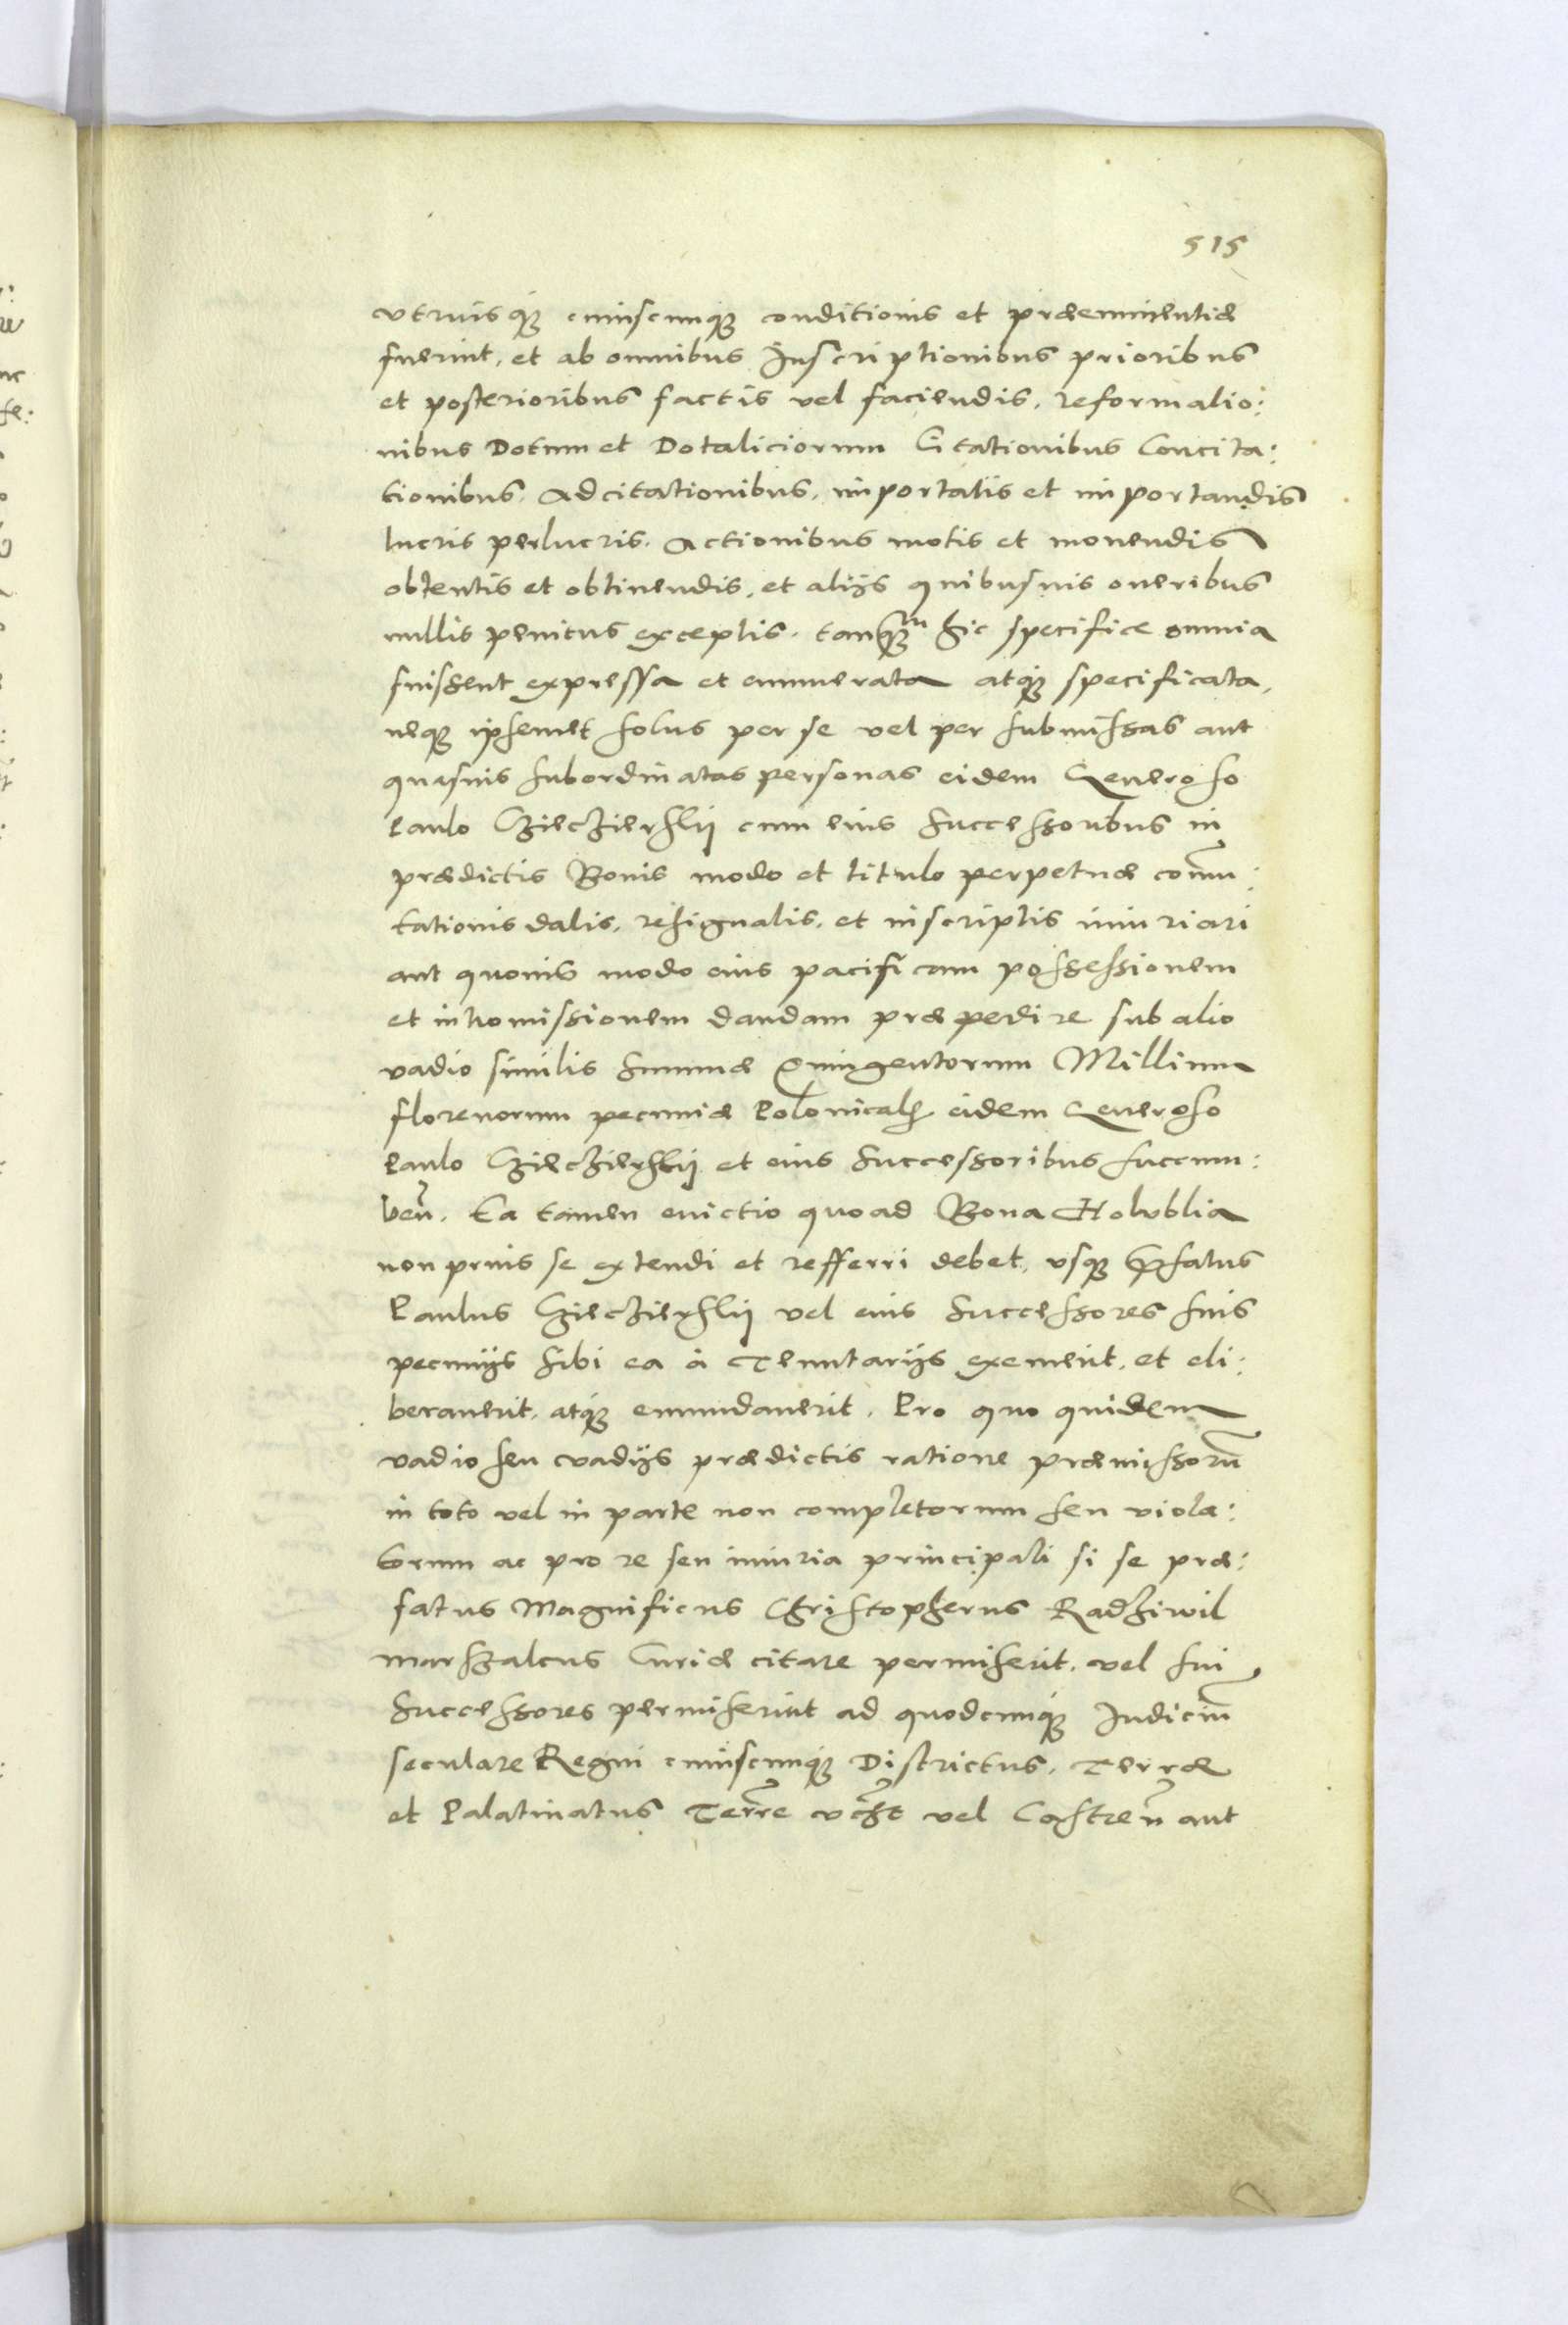 515
vtriusq̃ cuiuscunq̃ conditionis et præeminentiæ
fuerint, et ab omnibus Inscriptionibus prioribus
et posterioribus factis vel faciendis, reformatio:
nibus Dotum et Dotaliciorum Citationibus Concita:
tionibus, Adcitationibus, importatis et importandis
lucris perlucris, Actionibus motis et mouendis
obtentis et obtinendis, et alijs quibusuis oneribus
nullis penitus exceptis, tanq̃m hic specifice omnia
fuissent expressa et enumerata atq̃ specificata,
neq̃ ipsemet solus per se vel per submissas aut
quasuis subordinatas personas eidem Generoso
Paulo Cziecziersky cum eius Successoribus in
prædictis Bonis modo et titulo perpetuæ comũ:
tationis datis, resignatis, et inscriptis iniuriari
aut quouis modo eius pacificam possessionem
et intromissionem dandam præpedire sub alio
vadio similis summæ Quingentorum Millium
florenorum pecuniæ Polonicalis eidem Generoso
Paulo Cziecziersky et eius Successoribus succum:
beñ. Ea tamen euictio quoad Bona Holvblia
non prius se extendi et refferri debet, vsq̃ p̃fatus
Paulus Cziecziersky vel eius Successores suis
pecunijs sibi ea à Tenutarijs exemerit, et eli:
berauerit, atq̃ emundauerit. Pro quo quidem
vadio seu vadijs prædictis ratione præmissorũ
in toto vel in parte non completorum seu viola:
torum ac pro re seu iniuria principali si se præ:
fatus Magnificus Christopherus Radziwil
marszalcus Curiæ citare permiserit, vel sui
Successores permiserint ad quodcunq̃ Iudiciũ
seculare Regni cuiuscunq̃ Districtus, Terræ
et Palatinatus Terr̃e vc̃ht vel Castreñ aut